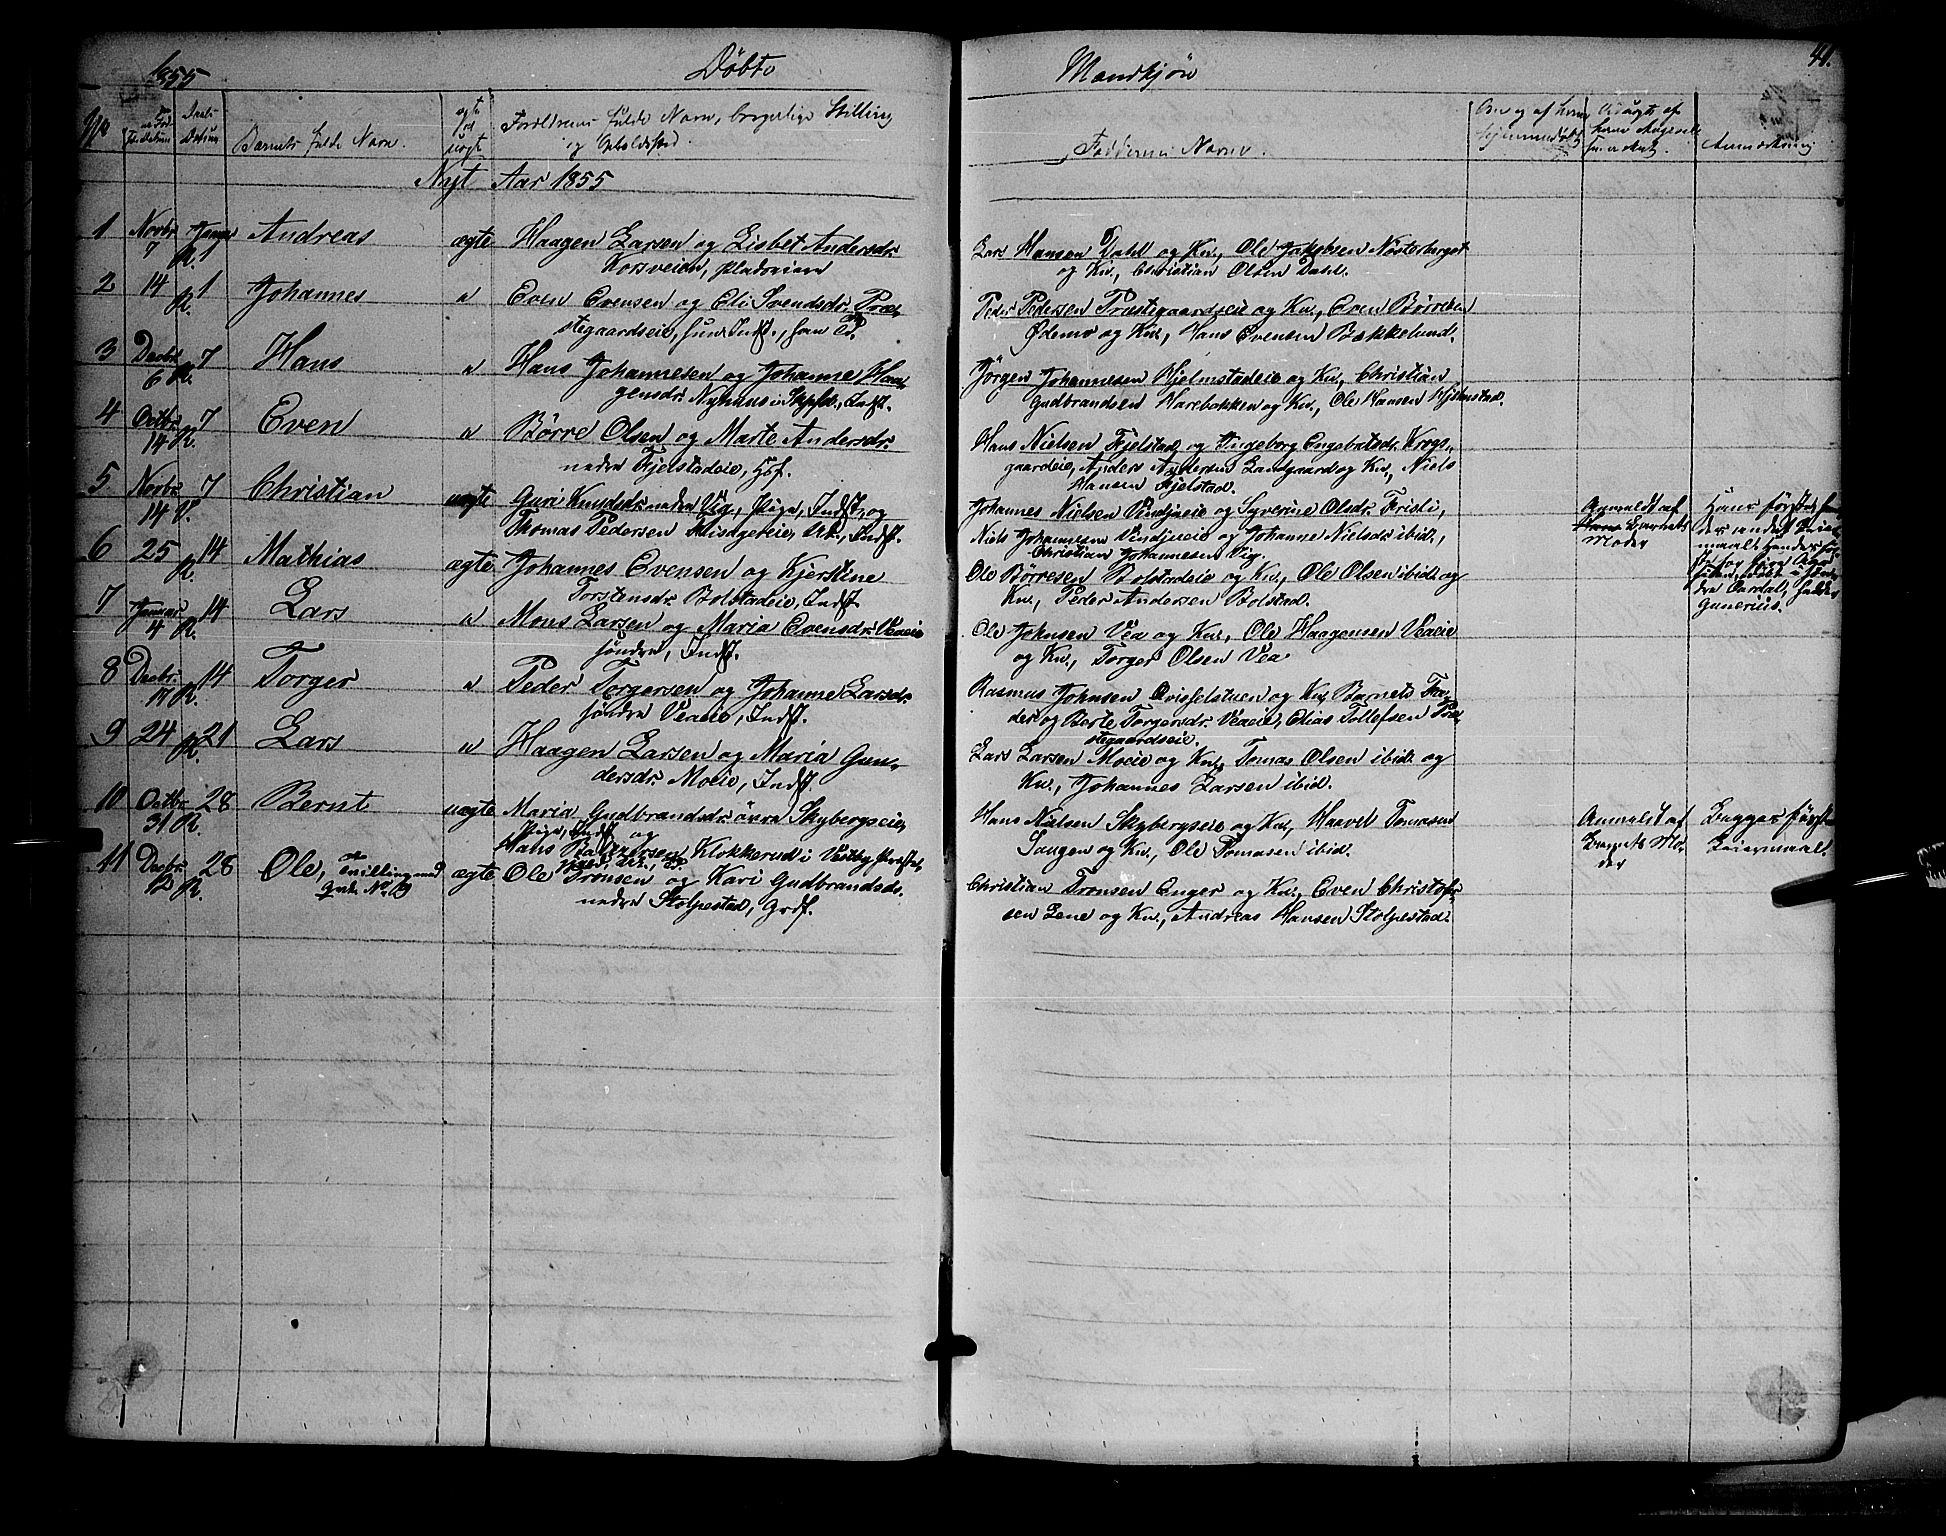 1855 Døbte Mandkjøn 41.
No Barnets fulde Navn. ægte uægte Forældrenes fulde Navn, borgerlige Stilling og Opholdssted. Faddernes Navne. Anmærkning
Nyt Aar 1855
1 Novbr. 7 Januar 1 K. Andreas ægte Haagen Larsen og Lisbet Andersdr.
Korsveien, pladseiere
Lars Hansen Dahl og Kn., Ole Jakobsen Nösterberget
og Kn., Christian Olsen Dahl.
2 14 K. 1 Johannes " Even Evensen og Eli Svendsdr. Præ-
stegaardseie, hun Indst., han
Peder Pedersen Præstegaardseie og Kn., Even Börresen
Ödemo og Kn., Hans Evensen Bækkelund.
3 Decbr. 6 K. 7 Hans " Hans Johannesen og Johanne Haa-
gensdr. Nyhuus Indst.
Jörgen Johannesen Hjelmstadeie og Kn., Christian
Gudbrandsen Harebakken og Kn., Ole Hansen Hjelmstad.
4 Octbr. 14 K. 7 Even " Börre Olsen og Marte Andersdr.
nedre Fjelstadeie, Hsf.
Hans Nielsen Fjelstad og Ingeborg Engebretsdr. Krogs-
gaardeie, Anders Andersen Landgaard og Kn., Niels
Hansen Fjelstad.
5 Novbr. 14 K. 7 Christian uægte Guri Knudsdr. nedre Vig, Pige, Indst., og
Thomas Pedersen Indst.
Johannes Nielsen Vindjueie og Syverine Olsdr. Frisli,
Niels Johannesen Vindjueie og Johanne Nielsdr. ibid.,
Christian Johannesen Vig.
Anmeldt af
Barnets
Moder
Hans första, hen-
des andet Leier-
maal.
Gunerius.
6 25 K. 14 Mathias ægte Johannes Evensen og Kjerstine
Torstensdr. Bolstadeie, Indst.
Ole Börresen Bolstadeie og Kn., Ole Olsen ibid. og
Kn., Peder Andersen Bolstad.
7 Januar 4 K. 14 Lars " Mons Larsen og Maria Evensdr. Veaeie
söndre, Indst.
Ole Johnsen Vea og Kn., Ole Haagensen Veaeie
og Kn., Torger Olsen Vea
8 Decbr. 17 K. 14 Torger " Peder Torgersen og Johanne Larsdr.
söndre Veaeie, Indst.
Rasmus Johnsen Qvislelstuen og Kn., Barnets Fa-
der og Berte Torgersdr. Veaeie, Elias Tollefsen Præ-
stegaardseie.
9 24 K. 21 Lars " Haagen Larsen og Maria Gun-
dersdr. Moeie, Indst.
Lars Larsen Moeie og Kn., Tomas Olsen ibid. og
Kn., Johannes Larsen ibid.
10 Octbr. 31 K. 28 Bernt uægte Maria Gudbrandsdr. övre Skybergseie,
Pige, Indst. og
Hans Klokkerud i Vestby
Hans Nielsen Skybergseie og Kn., Haavel Tomasen
Saugen og Kn., Ole Tomasen ibid.
Anmeldt af
Barnets Mo-
der
Begges förste
Leiermaal.
11 Decbr. 12 K. 28 Ole, Tvilling med ægte Ole Tronsen og Kari Gudbrandsdr.
nedre Stolpestad, Grdf.
Christian Tronsen Enger og Kn., Even Christofer-
sen Lene og Kn., Andreas Hansen Stolpestad.